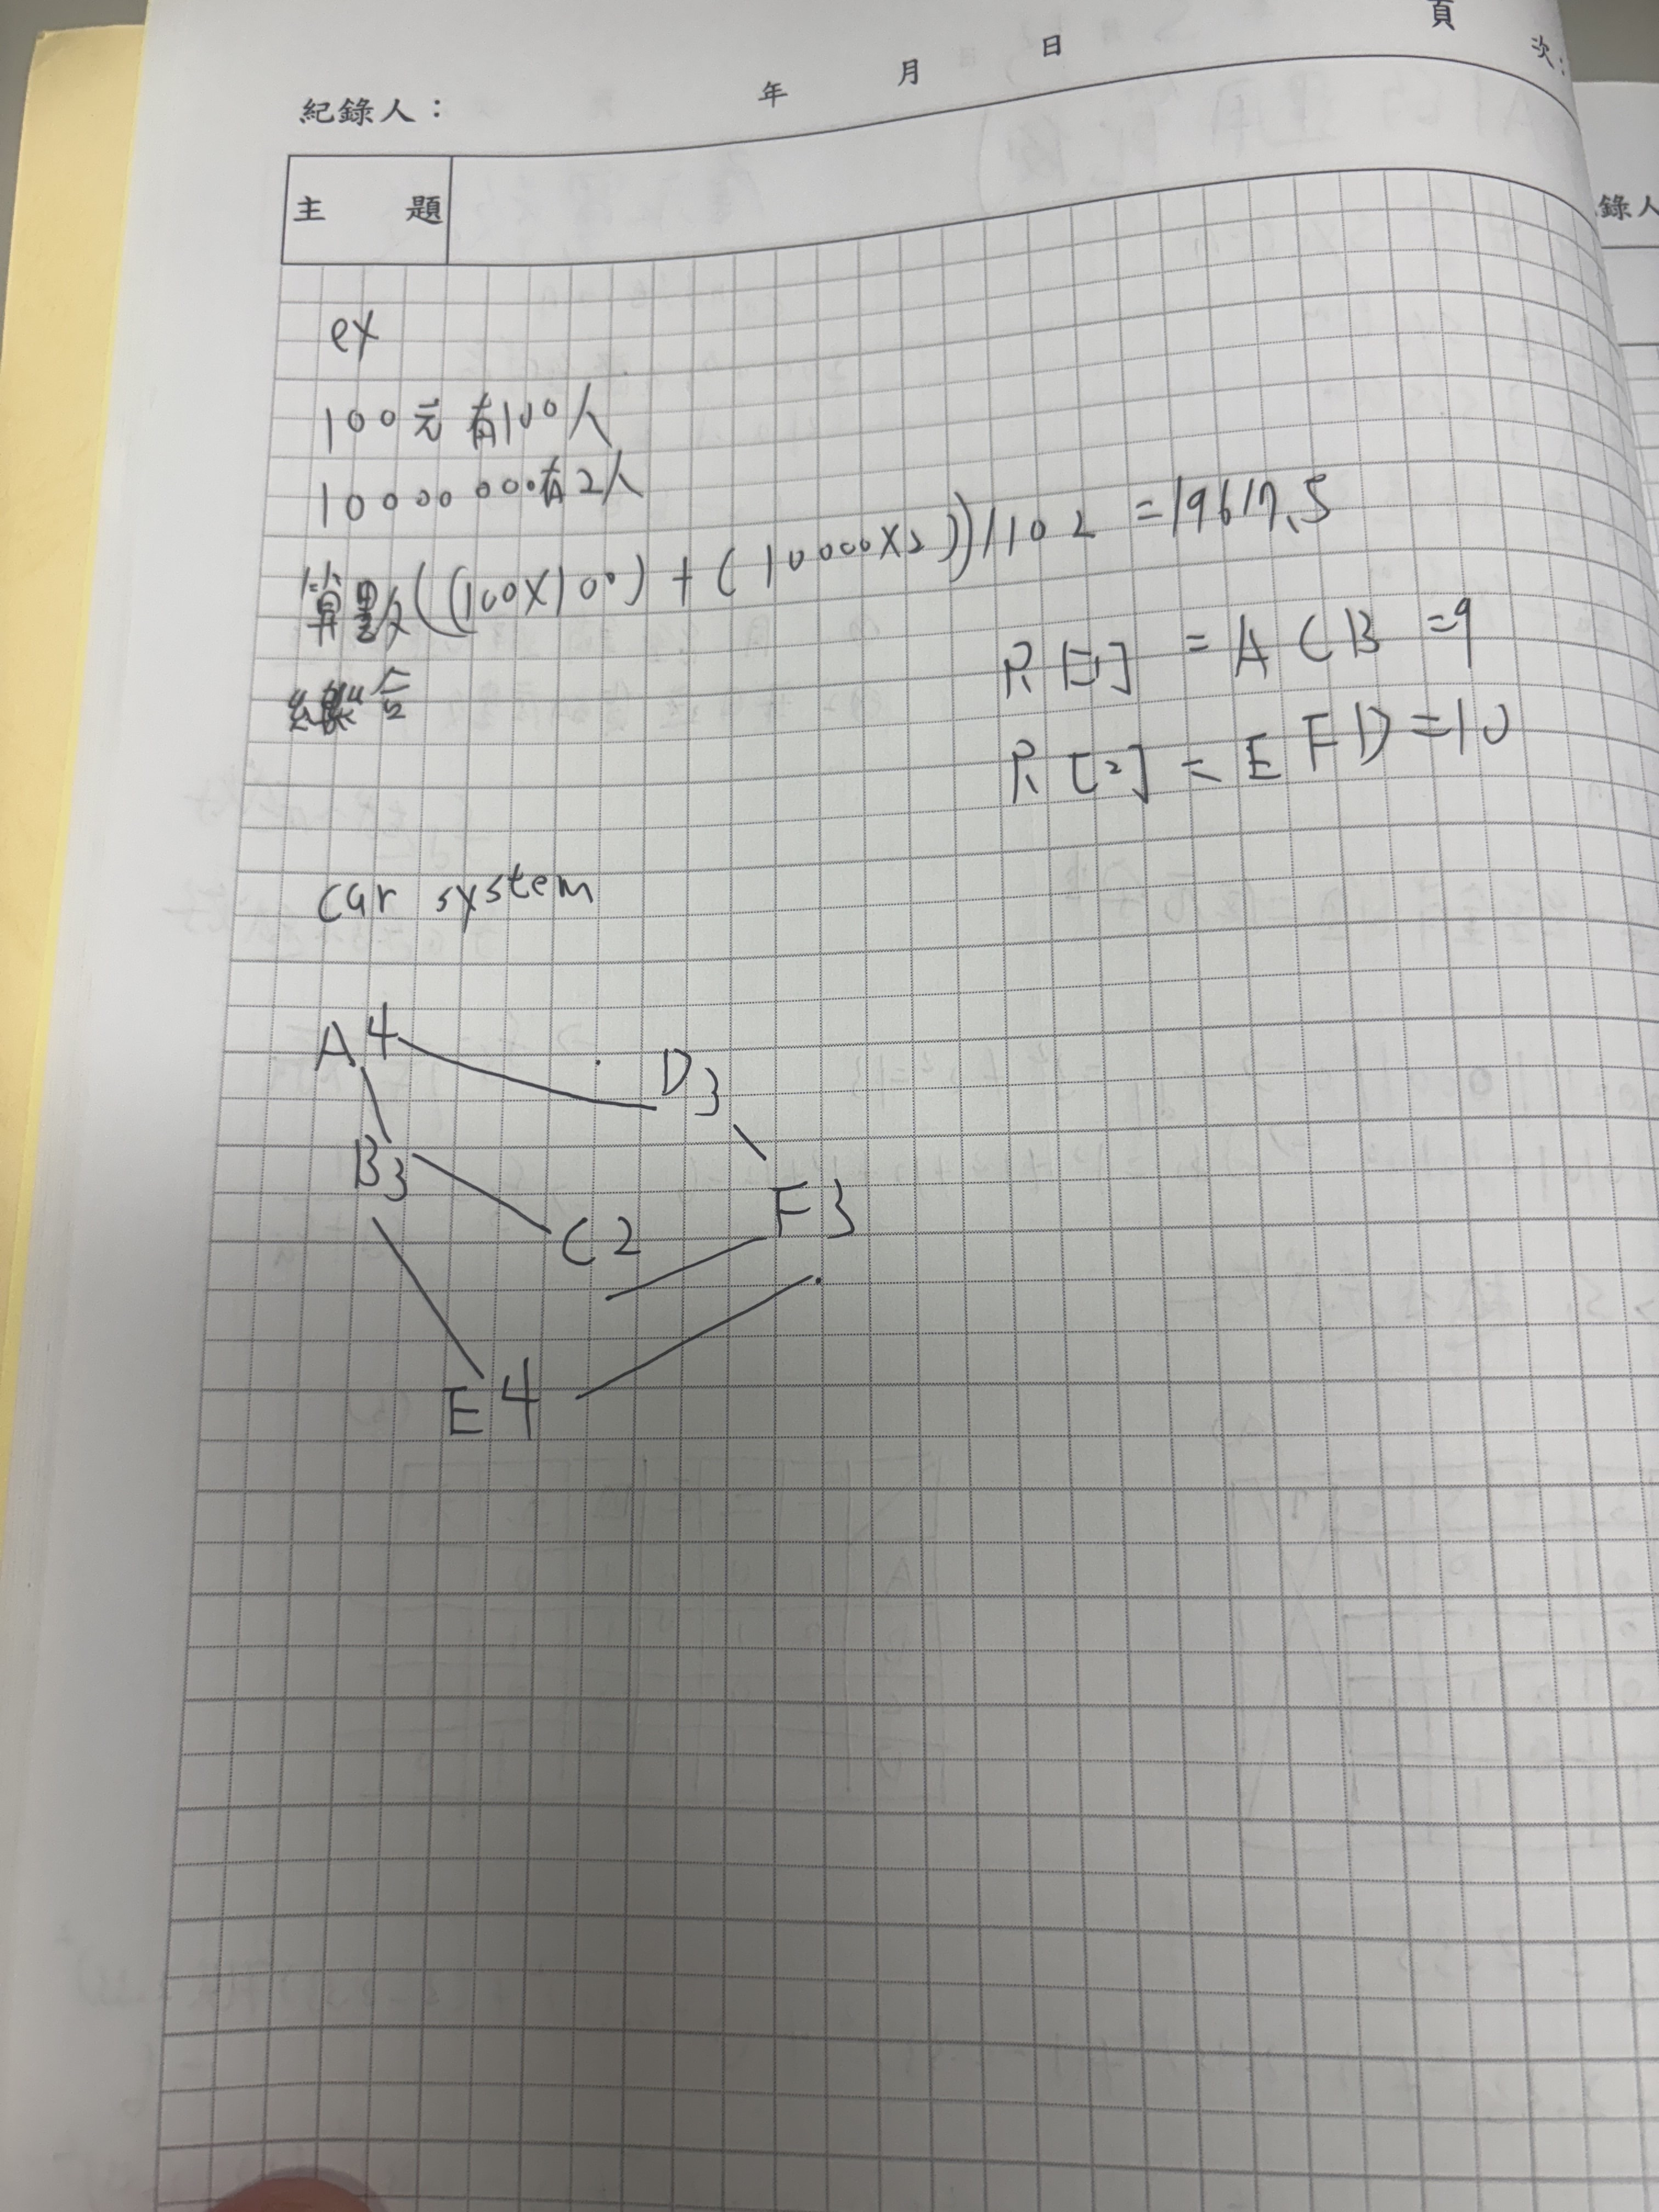 頁
次:
年 月 日
紀錄人：
錄人
主 題
ex
100元有100人
10000000有2人
算數((100X100)+(10000X2))/102 =19617.5
合
R[1] = A C B =9
R[2] = E F D =10
car system
A4
D3
B3
F3
C2
E4